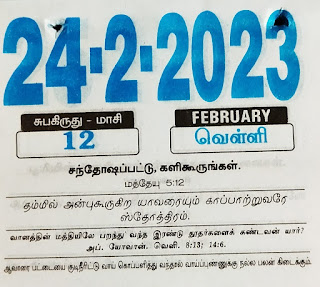 24-2-2023
சுபகிருது - மாசி
FEBRUARY
12
வெள்ளி
சந்தோஷப்பட்டு, களிகூருங்கள்.
மத்தேயு 5:12
தம்மில் அன்புகூருகிற யாவரையும் காப்பாற்றுவரே
ஸ்தோத்திரம்.
வானத்தின் மத்தியிலே பறந்து வந்த இரண்டு தூதர்களைக் கண்டவன் யார்?
அப். யோவான். வெளி. 8:13; 14:6.
ஆவாரை பட்டையை குடிநீரிட்டு வாய் கொப்பளித்து வந்தால் வாய்ப்புண்ணுக்கு நல்ல பலன் கிடைக்கும்.